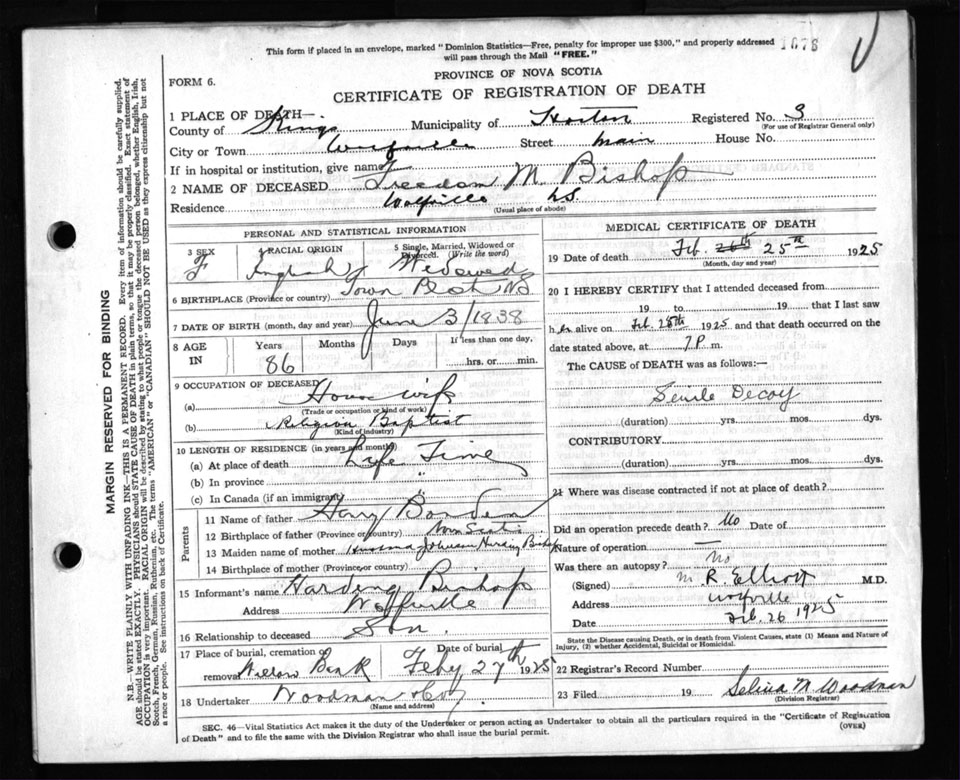 This form if placed in an envelope, marked "Dominion Statistics—Free, penalty for improper use $300," and properly addressed 1678
will pass through the Mail "FREE."
PROVINCE OF NOVA SCOTIA
FORM 6.
CERTIFICATE OF REGISTRATION OF DEATH
1 PLACE OF DEATH—
County of Kings Municipality of Horton Registered No. 3
(For use of Registrar General only)
City or Town Wolfville Street Main House No.
If in hospital or institution, give name
2 NAME OF DECEASED Freedom M Bishop
Residence Wolfville N.S.
(Usual place of abode)
PERSONAL AND STATISTICAL INFORMATION
3 SEX F
4 RACIAL ORIGIN English
5 Single, Married, Widowed or Divorced. (Write the word) Widowed
6 BIRTHPLACE (Province or country) Town Plot NS
7 DATE OF BIRTH (month, day and year) June 3/1838
8 AGE IN Years 86 Months Days If less than one day, hrs. or min.
9 OCCUPATION OF DECEASED
(a) House wife
(Trade or occupation or kind of work)
(b) Religion Baptist
(Kind of industry)
10 LENGTH OF RESIDENCE (in years and months)
(a) At place of death Life Time
(b) In province "
(c) In Canada (if an immigrant) "
Parents
11 Name of father Borden
12 Birthplace of father (Province or country) Nova Scotia
13 Maiden name of mother
14 Birthplace of mother (Province or country)
15 Informant's name Harding Bishop
Address Wolfville
16 Relationship to deceased Son
17 Place of burial, cremation or removal Willow Bank
Date of burial Feby 27th 1925
18 Undertaker Woodman & Co
(Name and address)
MEDICAL CERTIFICATE OF DEATH
19 Date of death Feb. 26th 25th 1925
(Month, day and year)
20 I HEREBY CERTIFY that I attended deceased from
19 to 19 , that I last saw
her alive on Feb. 25th 1925 and that death occurred on the
date stated above, at 7 P. m.
The CAUSE OF DEATH was as follows:—
Senile Decay
(duration) yrs. mos. dys.
CONTRIBUTORY
(duration) yrs. mos. dys.
21 Where was disease contracted if not at place of death?
Did an operation precede death? No Date of
Nature of operation
Was there an autopsy? No
(Signed) M. R. Elliott M.D.
Address Wolfville
Date Feb. 26 1925
State the Disease causing Death, or in death from Violent Causes, state (1) Means and Nature of
Injury, (2) whether Accidental, Suicidal or Homicidal.
22 Registrar's Record Number
23 Filed 19 Selina N. Woodman
(Division Registrar)
SEC. 46—Vital Statistics Act makes it the duty of the Undertaker or person acting as Undertaker to obtain all the particulars required in the "Certificate of Registration
of Death" and to file the same with the Division Registrar who shall issue the burial permit.
(OVER)
MARGIN RESERVED FOR BINDING
N.B.—WRITE PLAINLY WITH UNFADING INK—THIS IS A PERMANENT RECORD. Every item of information should be carefully supplied.
AGE should be stated EXACTLY. PHYSICIANS should STATE CAUSE OF DEATH in plain terms, so that it may be properly classified. Exact statement of
OCCUPATION is very important. RACIAL ORIGIN will be described by stating to what people or tongue the deceased person belonged, whether English, Irish,
Scotch, French, German, Russian, Ruthenian, etc. The terms "AMERICAN" or "CANADIAN" SHOULD NOT BE USED as they express citizenship but not
a race or people. See instructions on back of Certificate.